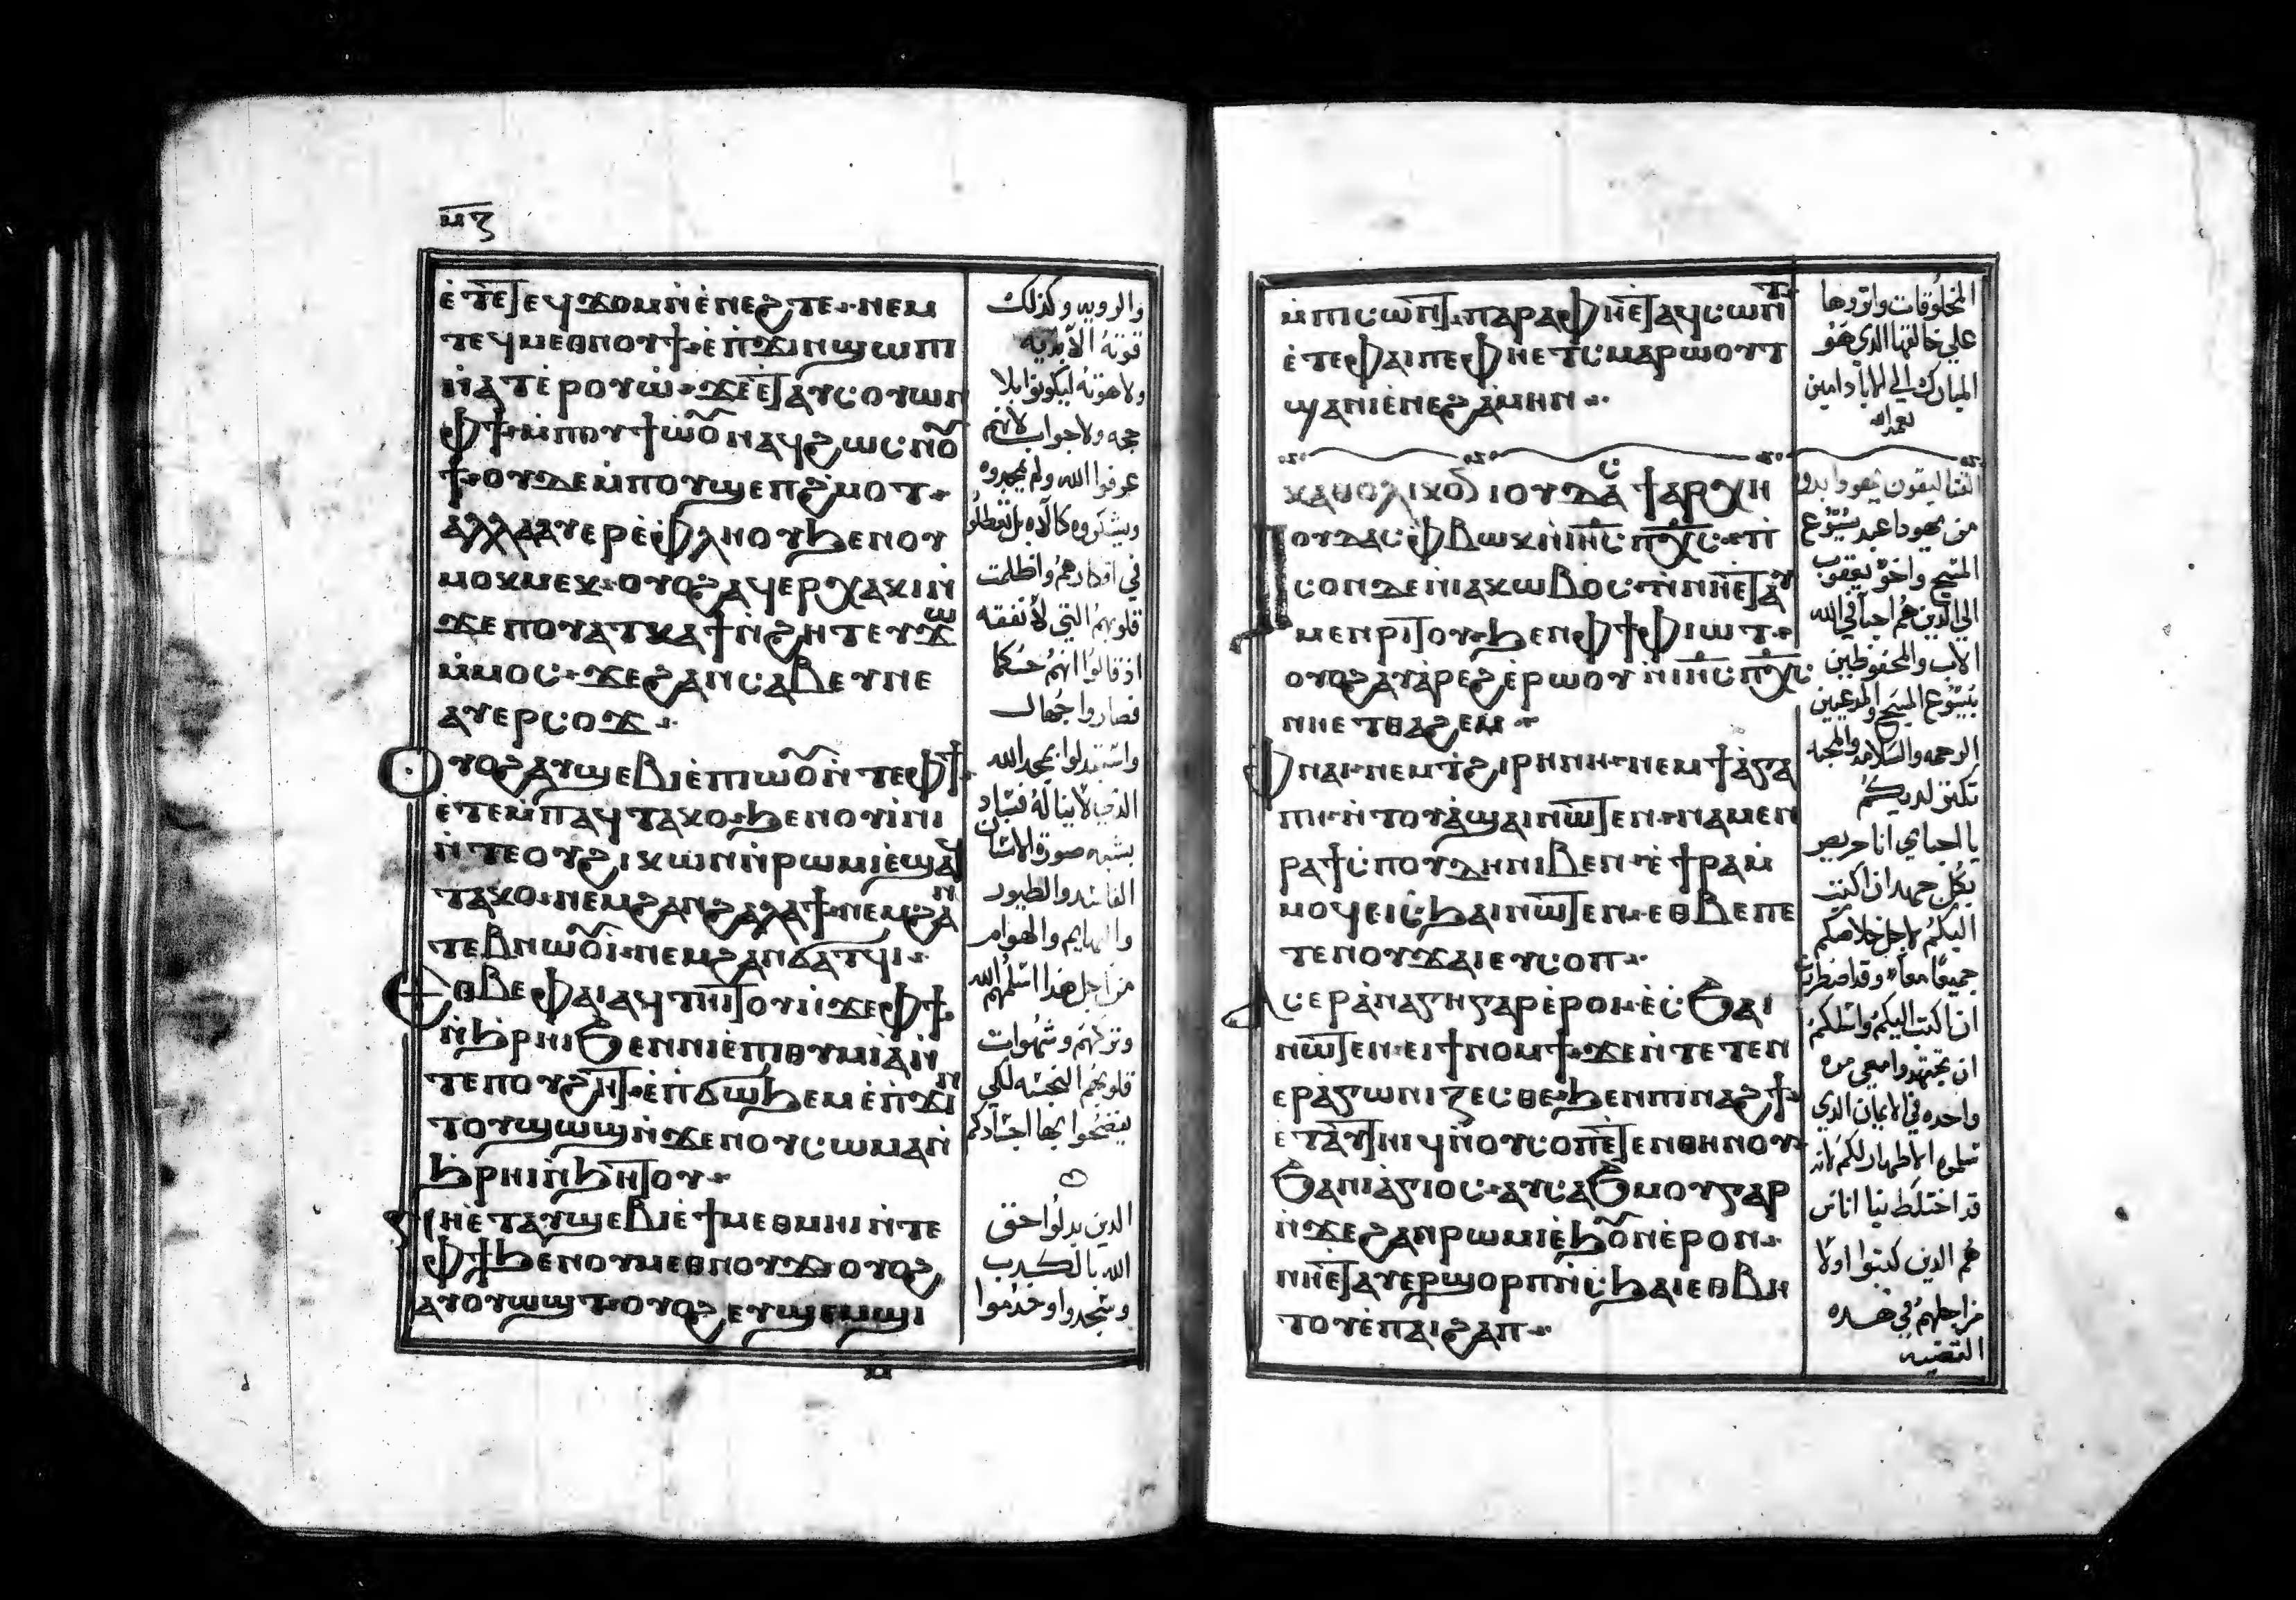 ⲙⲍ
ⲉ̀ⲧⲉ ⲧⲉϥϫⲟⲙ ⲛ̀ⲉⲛⲉϩ ⲧⲉ· ⲛⲉⲙ
ⲧⲉϥⲙⲉⲑⲛⲟⲩϯ· ⲉ̀ⲡϫⲓⲛϣⲱⲡⲓ
ⲛ̀ⲁⲧⲉ̀ⲣⲟⲩⲱ̀· ϫⲉ ⲉ̀ⲧⲁⲩⲥⲟⲩⲱⲛ
ⲫϯ ⲙ̀ⲡⲟⲩϯⲱⲟⲩ ⲛⲁϥ ϩⲱⲥ ⲛⲟⲩ
ϯ· ⲟⲩⲇⲉ ⲙ̀ⲡⲟⲩϣⲉⲡϩ̀ⲙⲟⲧ·
ⲁⲗⲗⲁ ⲁⲩⲉⲣⲉ̀ⲫⲗⲏⲟⲩ ϧⲉⲛ ⲟⲩ
ⲙⲟⲕⲙⲉⲕ· ⲟⲩⲟϩ ⲁϥⲉⲣⲭⲁⲕⲓ ⲛ̀
ϫⲉ ⲡⲟⲩⲁⲧⲕⲁϯ ⲛ̀ϩⲏⲧ ⲉⲩϫⲱ
ⲙ̀ⲙⲟⲥ· ϫⲉ ϩⲁⲛⲥⲁⲃⲉⲩ ⲛⲉ
ⲁⲩⲉⲣⲥⲟϫ·
Ⲟⲩⲟϩ ⲁⲩϣⲉⲃⲓⲉ̀ ⲡⲓⲱⲟⲩ ⲛ̀ⲧⲉ ⲫϯ
ⲉ̀ⲧⲉ ⲙ̀ⲡⲁϥⲧⲁⲕⲟ· ϧⲉⲛ ⲟⲩⲓ̀ⲛⲓ
ⲛ̀ⲧⲉ ⲟⲩϩⲓⲕⲱⲛ ⲛ̀ⲣⲱⲙⲓ ⲉ̀ϣⲁϥ
ⲧⲁⲕⲟ· ⲛⲉⲙ ϩⲁⲛϩⲁⲗⲁϯ· ⲛⲉⲙ ϩⲁⲛ
ⲧⲉⲃⲛⲱⲟⲩⲓ· ⲛⲉⲙ ϩⲁⲛϭⲁⲧϥⲓ·
Ⲉⲑⲃⲉ ⲫⲁⲓ ⲁϥⲧⲏⲓⲧⲟⲩ ⲛ̀ϫⲉ ⲫϯ·
ⲛ̀ϧⲣⲏⲓ ϧⲉⲛ ⲛⲓⲉ̀ⲡⲓⲑⲩⲙⲓⲁ ⲛ̀
ⲧⲉ ⲡⲟⲩϩⲏⲧ· ⲉ̀ⲡϭⲱϧⲉⲙ ⲉ̀ⲡϫⲓⲛ
ⲧⲟⲩϣⲱϣ ⲛ̀ϫⲉ ⲛⲟⲩⲥⲱⲙⲁ ⲛ̀
ϧⲣⲏⲓ ⲛ̀ϧⲏⲧⲟⲩ·
ⲛⲏ ⲉ̀ⲧⲁⲩϣⲉⲃⲓⲉ̀ ϯⲙⲉⲑⲙⲏⲓ ⲛ̀ⲧⲉ
ⲫϯ ϧⲉⲛ ⲟⲩⲙⲉⲑⲛⲟⲩϫ· ⲟⲩⲟϩ
ⲁⲩⲟⲩⲱϣⲧ· ⲟⲩⲟϩ ⲉⲩϣⲉⲙϣⲓ
والروبيه وكذلك
قوته الأبديه
ولاهوته ليكونوا بلا
حجه ولا جواب لانهم
عرفوا الله ولم يمجدوه
ويشكروه كالآه بل تعطلوا
في افكارهم واظلمت
قلوبهم التي لا تفقه
اذ قالوا انهم حكما
فصاروا جهال
واستبدلوا بمجد الله
الذي لا يناله فساد
بشبه صورة الانسان
الفاسده والطيور
والبهايم والهوام
من اجل هذا اسلمهم الله
وتركهم وشهوات
قلوبهم النجسه لكي
يفضحوا بها اجسادهم
الذين بدلوا حق
الله بالكدب
وسجدوا وخدموا
ⲙ̀ⲡⲓⲥⲱⲛⲧ· ⲡⲁⲣⲁ ⲫⲏ ⲉ̀ⲧⲁϥⲥⲱⲛⲧ
ⲉ̀ⲧⲉ ⲫⲁⲓ ⲡⲉ ⲫⲏ ⲉⲧⲥ̀ⲙⲁⲣⲱⲟⲩⲧ
ϣⲁ ⲛⲓⲉ̀ⲛⲉϩ ⲁ̀ⲙⲏⲛ·
ⲕⲁⲑⲟⲗⲓⲕⲟⲛ ⲓⲟⲩⲇⲁⲥ ϯⲁⲣⲭⲏ
Ⲓⲟⲩⲇⲁⲥ ⲫⲃⲱⲕ ⲛ̀ⲓⲏⲥ ⲡⲭⲥ· ⲡⲓ
ⲥⲟⲛ ⲇⲉ ⲛ̀ⲓⲁⲕⲱⲃⲟⲥ· ⲛ̀ⲛⲏ ⲉ̀ⲧⲁⲩ
ⲙⲉⲛⲣⲓⲧⲟⲩ· ϧⲉⲛ ⲫϯ ⲫⲓⲱⲧ·
ⲟⲩⲟϩ ⲁⲩⲁ̀ⲣⲉϩ ⲉ̀ⲣⲱⲟⲩ ⲛ̀ⲓⲏⲥ ⲡⲭⲥ
ⲛⲏ ⲉⲧⲑⲁϩⲉⲙ·
Ⲫⲛⲁⲓ· ⲛⲉⲙ ⲧϩⲓⲣⲏⲛⲏ· ⲛⲉⲙ ϯⲁ̀ⲅⲁ
ⲡⲏ· ⲛ̀ⲧⲟⲩⲁ̀ϣⲁⲓ ⲛⲱⲧⲉⲛ· ⲛⲁⲙⲉⲛ
ⲣⲁϯ ⲥⲡⲟⲩⲇⲏ ⲛⲓⲃⲉⲛ· ⲉ̀ϯⲣⲁ ⲙ̀
ⲙⲟϥ ⲉⲓⲥϧⲁⲓ ⲛⲱⲧⲉⲛ· ⲉⲑⲃⲉ ⲡⲉ
ⲧⲉⲛⲟⲩϫⲁⲓ ⲉⲩⲥⲟⲡ·
Ⲁⲥⲉⲣⲁ̀ⲛⲁⲅⲕⲏ ⲅⲁⲣ ⲉ̀ⲣⲟⲓ· ⲉ̀ⲥϧⲁⲓ
ⲛⲱⲧⲉⲛ· ⲉⲓϯⲛⲟⲙϯ· ϫⲉ ⲛ̀ⲧⲉⲧⲉⲛ
ⲉⲣⲁ̀ⲅⲱⲛⲓⲍⲉⲥⲑⲉ· ϧⲉⲛ ⲡⲓⲛⲁϩϯ·
ⲉ̀ⲧⲁⲩⲧⲏⲓϥ ⲛ̀ⲟⲩⲥⲟⲡ ⲉ̀ⲧⲉⲛ ⲑⲏⲛⲟⲩ·
ϧⲁ ⲛⲓⲁ̀ⲅⲓⲟⲥ· ⲁⲩⲥⲁϧⲙⲟⲩ ⲅⲁⲣ
ⲛ̀ϫⲉ ϩⲁⲛⲣⲱⲙⲓ ⲉ̀ϧⲟⲩⲛ ⲉ̀ⲣⲟⲛ·
ⲛⲏ ⲉ̀ⲧⲁⲩⲉⲣϣⲟⲣⲡ ⲛ̀ⲥϧⲁⲓ ⲉⲑⲃⲏ
ⲧⲟⲩ ⲉ̀ⲡⲁⲓϩⲁⲡ·
المخلوقات واتروها
على خالقها الذي هو
المبارك الي الاباد امين
نعمدالله
من يهودا عبد يسوع
المسيح واخو يعقوب
الي الذين هم احبا في الله
الاب والمحفوظين
بيسوع المسيح والمدعيين
الرحمه والسلامه والمحبه
تكثر لديكم
يا احباي انا حريص
بكل جهد ان اكتب
اليكم لاجل خلاصكم
جميعًا معاً وقد اضطرت
ان اكتب اليكم واسلكم
ان تجتهدوا معي مره
واحده في الايمان الذي
سلموه الاطهار لكم لانه
قد اختلط بنا اناس
هم الذين كتبوا اولا
من اجلهم في هده
القضيه